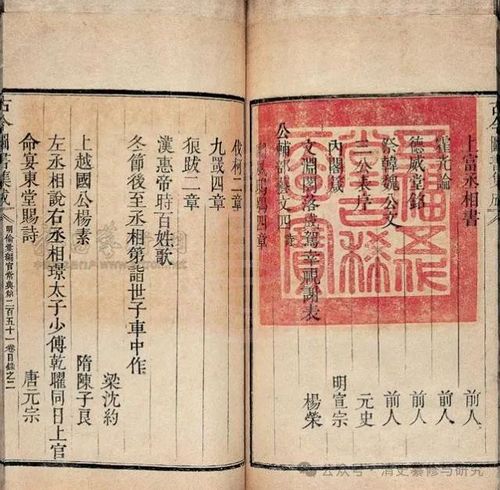 上富丞相書 前人
霍光論 前人
德威堂銘 前人
祭韓魏公文 前人
三公表序 元史
內閣箴 明宣宗
文淵閣落成駕幸觀謝表 楊榮
公輔部藝文四
五福五代
堂古稀
天子寶
伐柯二章
九罭四章
狼跋二章
漢惠帝時百姓歌
冬節後至丞相第詣世子車中作 梁沈約
上越國公楊素 隋陳子良
左丞相說右丞相璟太子少傅乾曜同日上官
命宴東堂賜詩 唐元宗
古今圖書集成 明倫彙編官常典第二百五十一卷目錄之二
公众号·清史纂修与研究